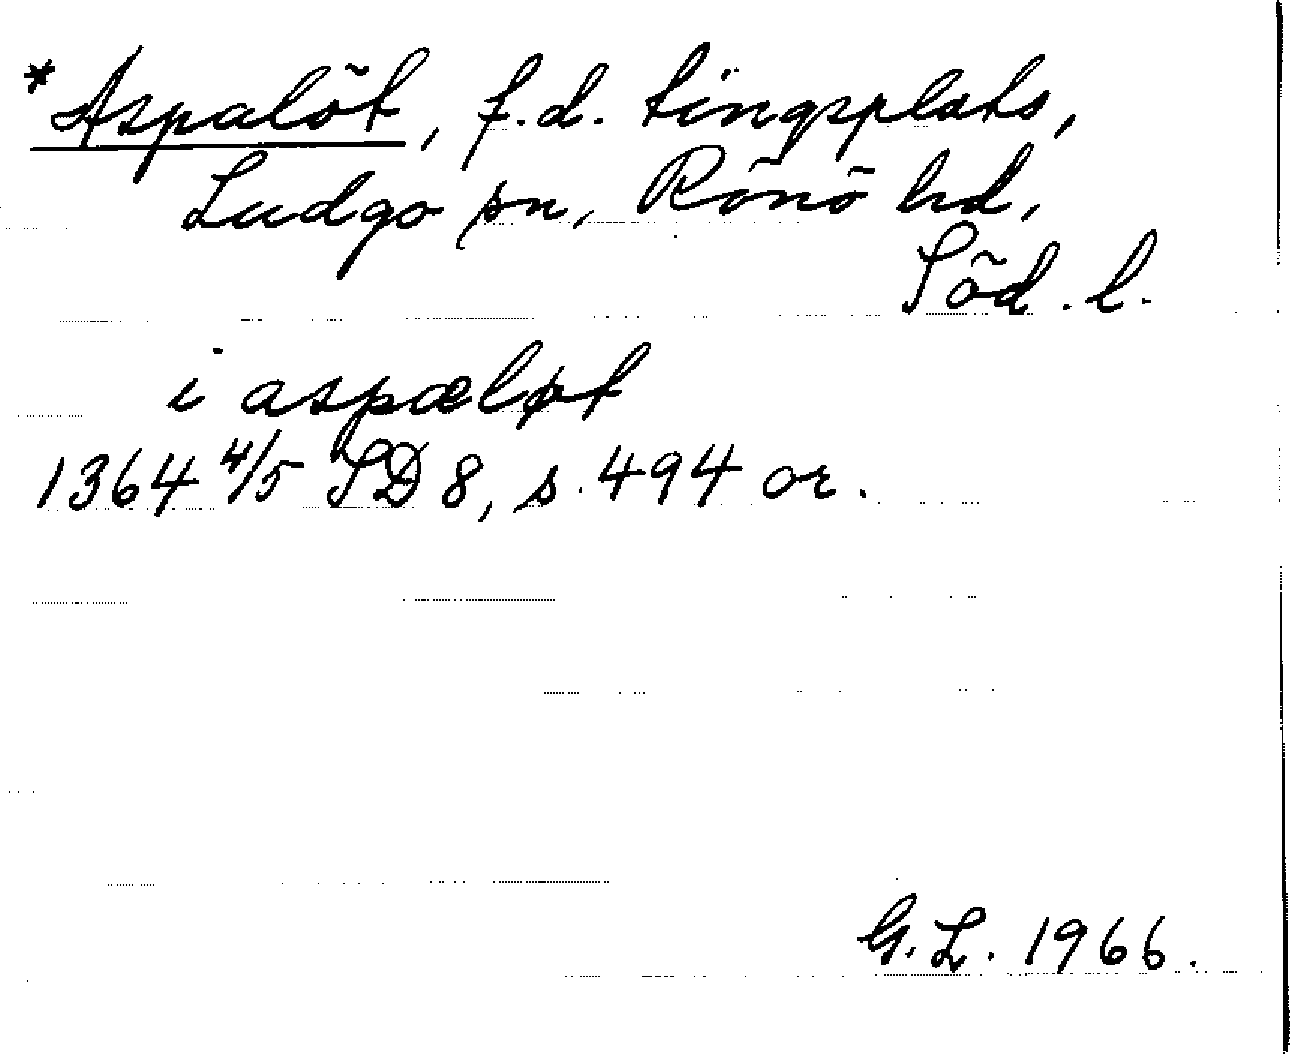 *Aspalöt, f.d. tingsplats,
Ludgo sn, Rönö hd,
Söd. l.
i aspæløt
1364 4/5 SD 8, s. 494 or.
G.L. 1966.